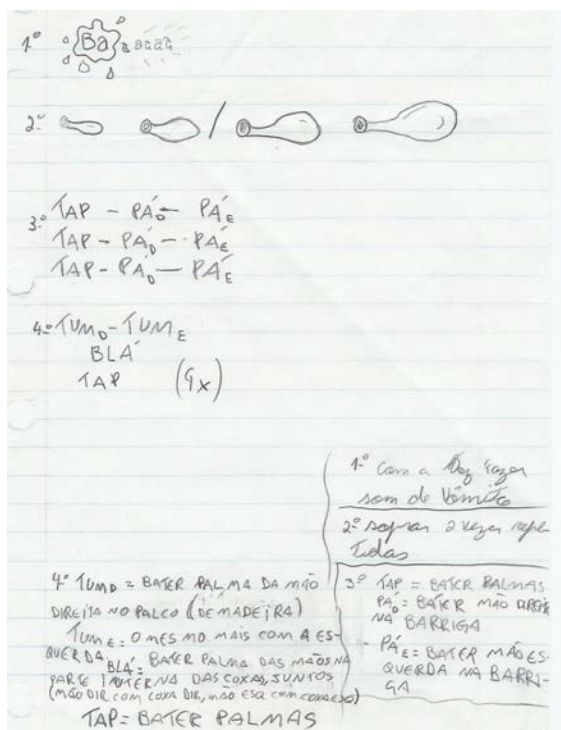 1º Ba agaga
2º
3º TAP - PÁD - PÁE
TAP - PÁD - PÁE
TAP - PÁD - PÁE
4º TUMD - TUME
BLÁ
TAP (4x)
1º Com a Voz fazer
som de Vômito
2º soprar 2 vezes repe
tidas
3º TAP = BATER PALMAS
PÁD = BATER MÃO DIREITA
NA BARRIGA
- PÁE = BATER MÃO ES-
QUERDA NA BARRI-
GA
4º TUMD = BATER PALMA DA MÃO
DIREITA NO PALCO (DE MADEIRA)
TUME = O MESMO MAIS COM A ES-
QUERDA.
BLÁ = BATER PALMA DAS MÃOS NA
PARTE INTERNA DAS COXAS, JUNTOS
(MÃO DIR COM COXA DIR, MÃO ESQ COM COXA ESQ)
TAP = BATER PALMAS